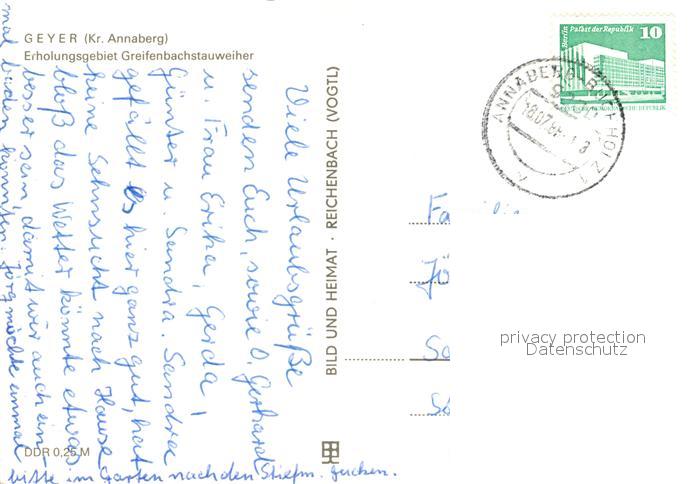 GEYER (Kr. Annaberg)
Erholungsgebiet Greifenbachstauweiher
Viele Urlaubsgrüße
senden Euch, sowie O. Gerhard
u. Frau Erika, Gerda,
Günter u. Sandra. Sandra
gefällt es hier ganz gut, hat
keine Sehnsucht nach Hause
bloß das Wetter könnte etwas
besser sein, damit wir auch ein-
mal baden könnten. Jörg möchte einmal
bitte im Garten nach den Stiefm. gucken.
DDR 0,25 M
BILD UND HEIMAT · REICHENBACH (VOGTL)
Berlin Palast der Republik
10
DEUTSCHE DEMOKRATISCHE REPUBLIK
ANNABERG-BUCHHOLZ 1
Fa
Jö
privacy protection
Datenschutz